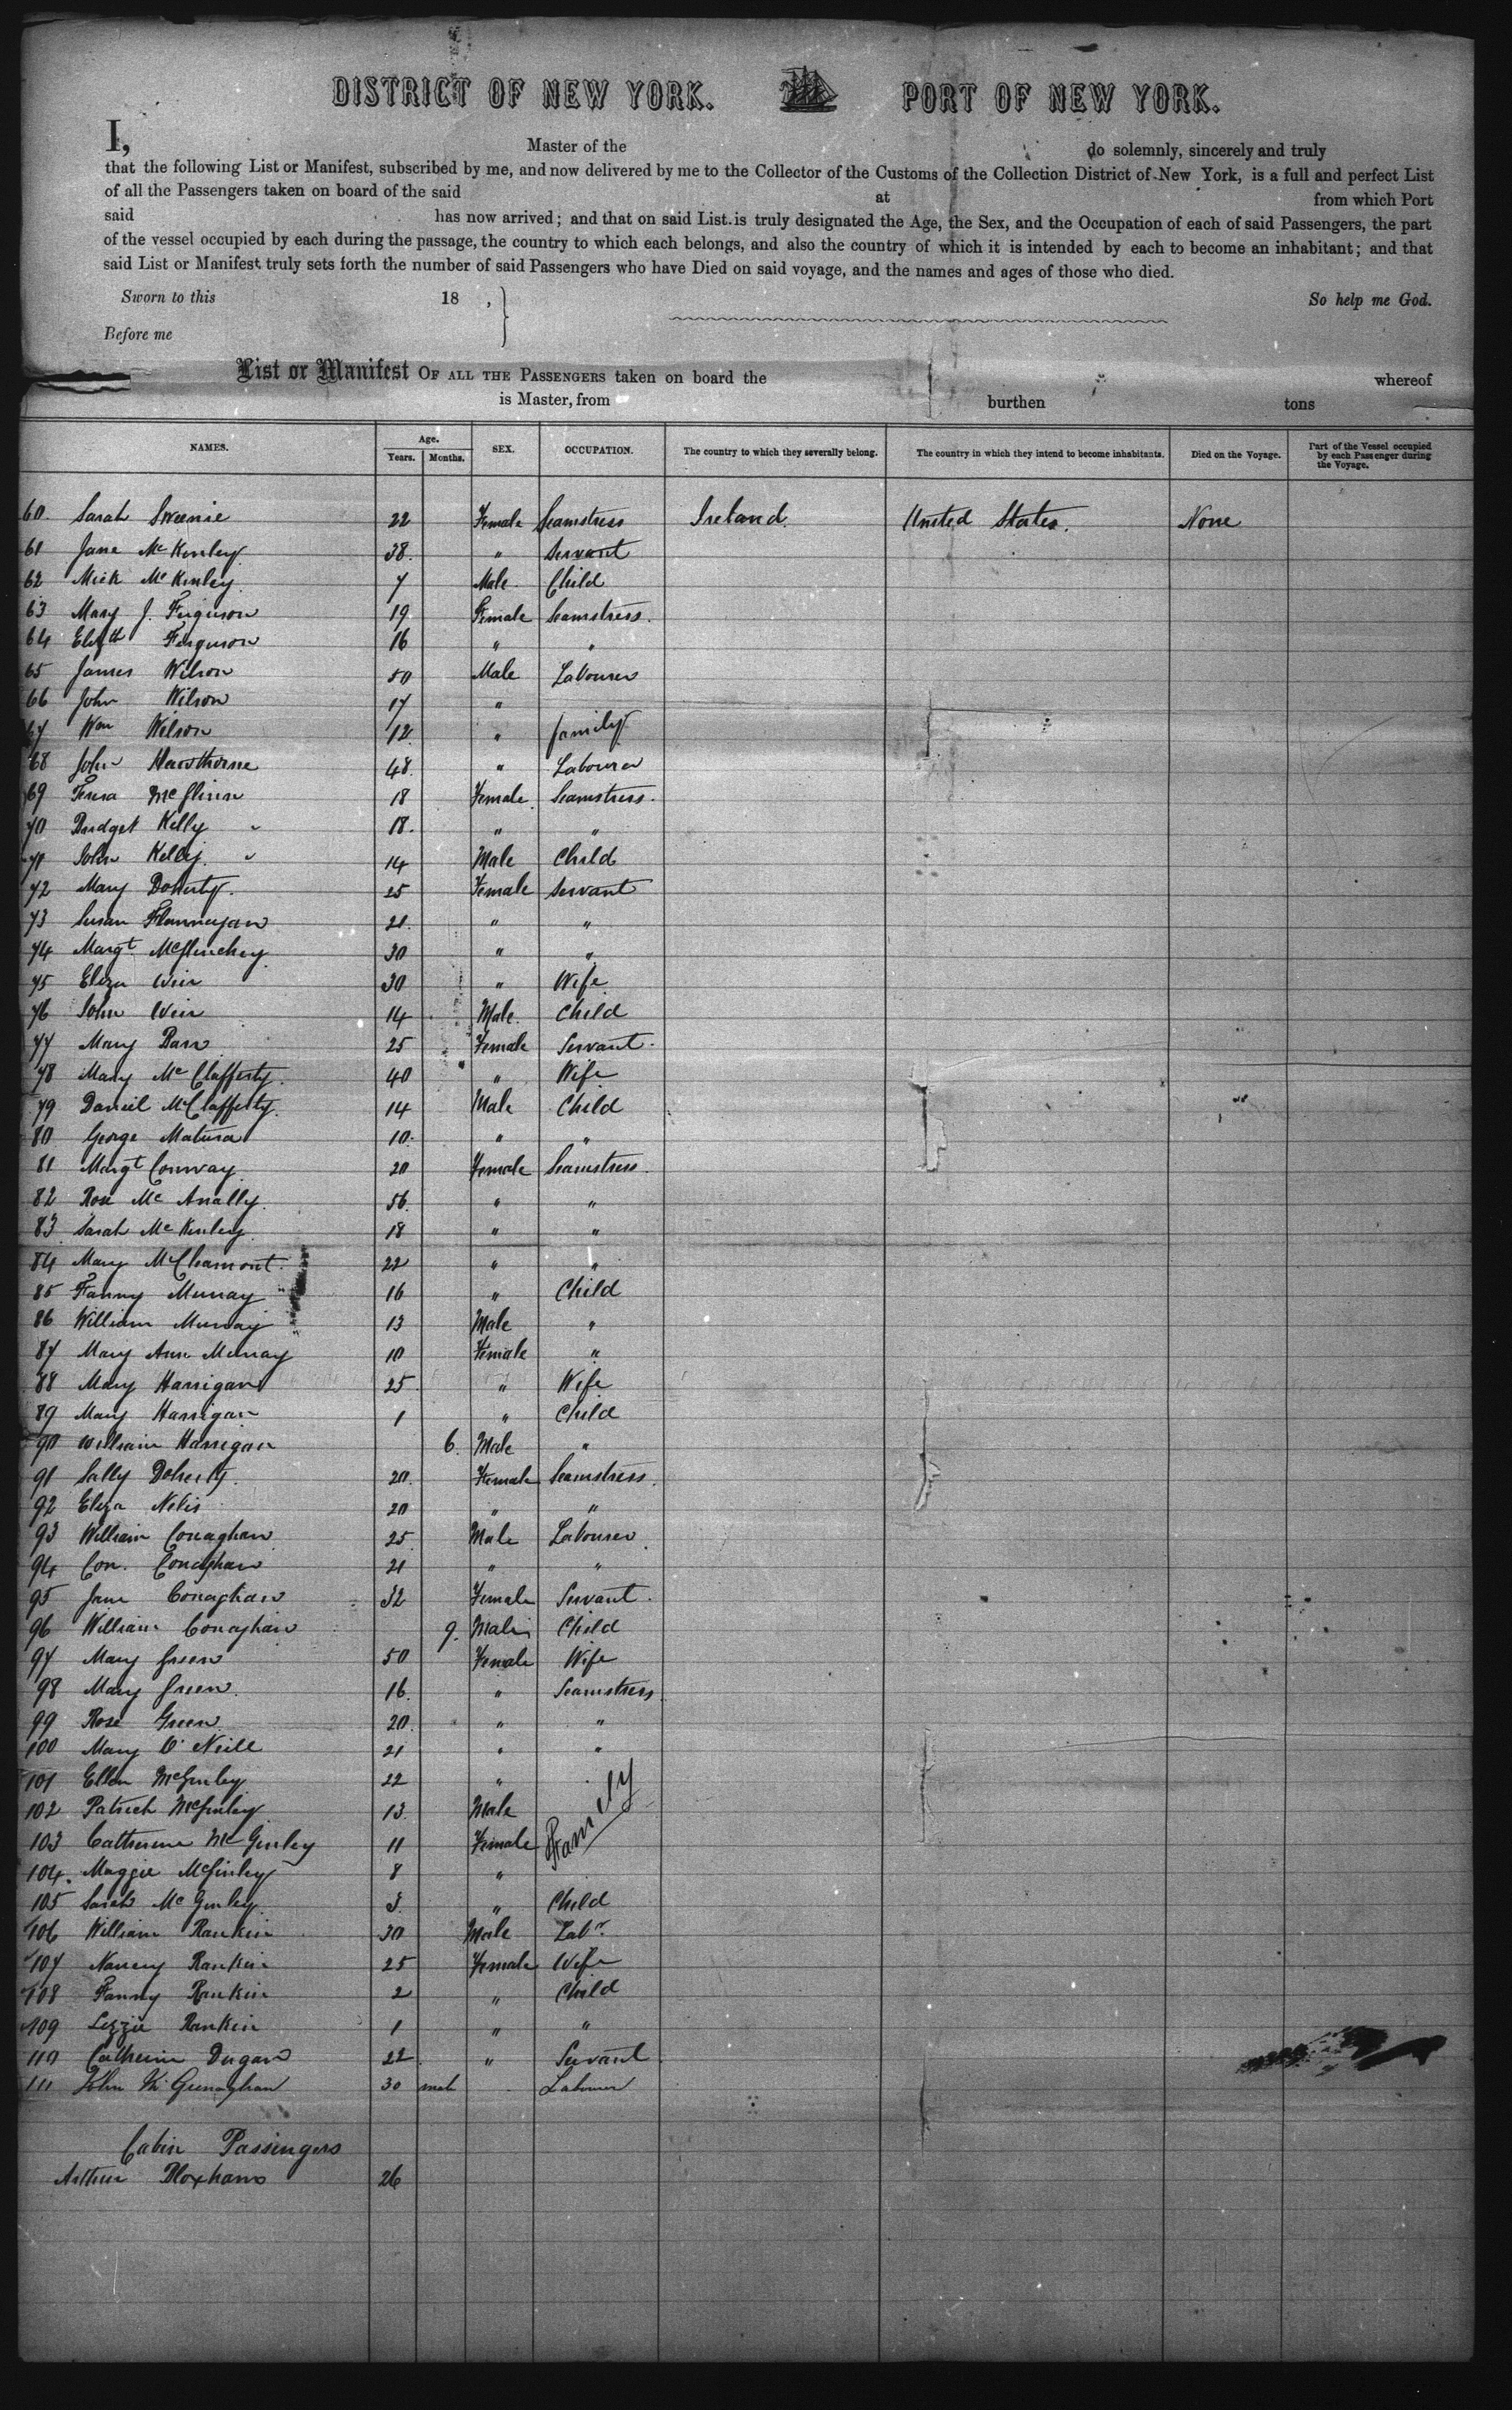 DISTRICT OF NEW YORK. PORT OF NEW YORK.
I, Master of the do solemnly, sincerely and truly
that the following List or Manifest, subscribed by me, and now delivered by me to the Collector of the Customs of the Collection District of New York, is a full and perfect List
of all the Passengers taken on board of the said at from which Port
said has now arrived; and that on said List is truly designated the Age, the Sex, and the Occupation of each of said Passengers, the part
of the vessel occupied by each during the passage, the country to which each belongs, and also the country of which it is intended by each to become an inhabitant; and that
said List or Manifest truly sets forth the number of said Passengers who have Died on said voyage, and the names and ages of those who died.
Sworn to this 18 , So help me God.
Before me
List or Manifest OF ALL THE PASSENGERS taken on board the whereof
is Master, from burthen tons
NAMES. Age. Years. Months. SEX. OCCUPATION. The country to which they severally belong. The country in which they intend to become inhabitants. Died on the Voyage. Part of the Vessel occupied by each Passenger during the Voyage.
60. Sarah Sweenie 22 Female Seamstress Ireland. United States. None
61 Jane McKinley 38. " Servant
62 Mick McKinley 7 Male Child
63 Mary J. Ferguson 19 Female Seamstress.
64 Elizth Ferguson 16 " "
65 James Wilson 50 Male Labourer
66 John Wilson 17 "
67 Wm Wilson 12 " family
68 John Hawthorne 48. " Labourer
69 McGlinn 18 Female Seamstress.
70 Bridget Kelly " 18. " "
71 John Kelly. " 14 Male Child
72 Mary Doherty. 25 Female Servant
73 Susan Flannagan 21. " "
74 Margt. McGlinchey 30 " "
75 Eliza Weir 30 " Wife
76 John Weir 14 Male. Child
77 Mary Barr 25 Female Servant.
78 Mary McClafferty. 40 " Wife
79 Daniel McClafferty. 14 Male Child
80 George Matura 10. " "
81 Margt Conway 20 Female Seamstress.
82 Rose McAnally. 56. " "
83 Sarah McKinley 18 " "
84 Mary McClamont. 22 " "
85 Fanny Murray 16 " Child
86 William Murray 13 Male "
87 Mary Ann Murray 10 Female "
88 Mary Harrigan 25. " Wife
89 Mary Harrigan 1 " Child
90 William Harrigan 6. Male "
91 Sally Doherty. 20. Female Seamstress.
92 Eliza Nelis 20 " "
93 William Conaghan 25. Male Labourer.
94 Con. Conaghan 21 " "
95 Jane Conaghan 32 Female Servant.
96 William Conaghan 9. Male Child
97 Mary Green 50 Female Wife
98 Mary Green. 16. " Seamstress.
99 Rose Green 20. " "
100 Mary O'Neill 21 " "
101 Ellen McGinley 22 "
102 Patrick McGinley 13. Male
103 Catherine McGinley 11 Female Family
104. Maggie McGinley 8 "
105 Sarah McGinley 3. " Child
106 William Rankin 30 Male Labr.
107 Nancy Rankin 25 Female Wife
108 Fanny Rankin 2 " Child
109 Lizzie Rankin 1 " "
110 Catherine Dugan 22. " Servant.
111 John 30 male Labourer
Cabin Passengers
Arthur Bloxham 26